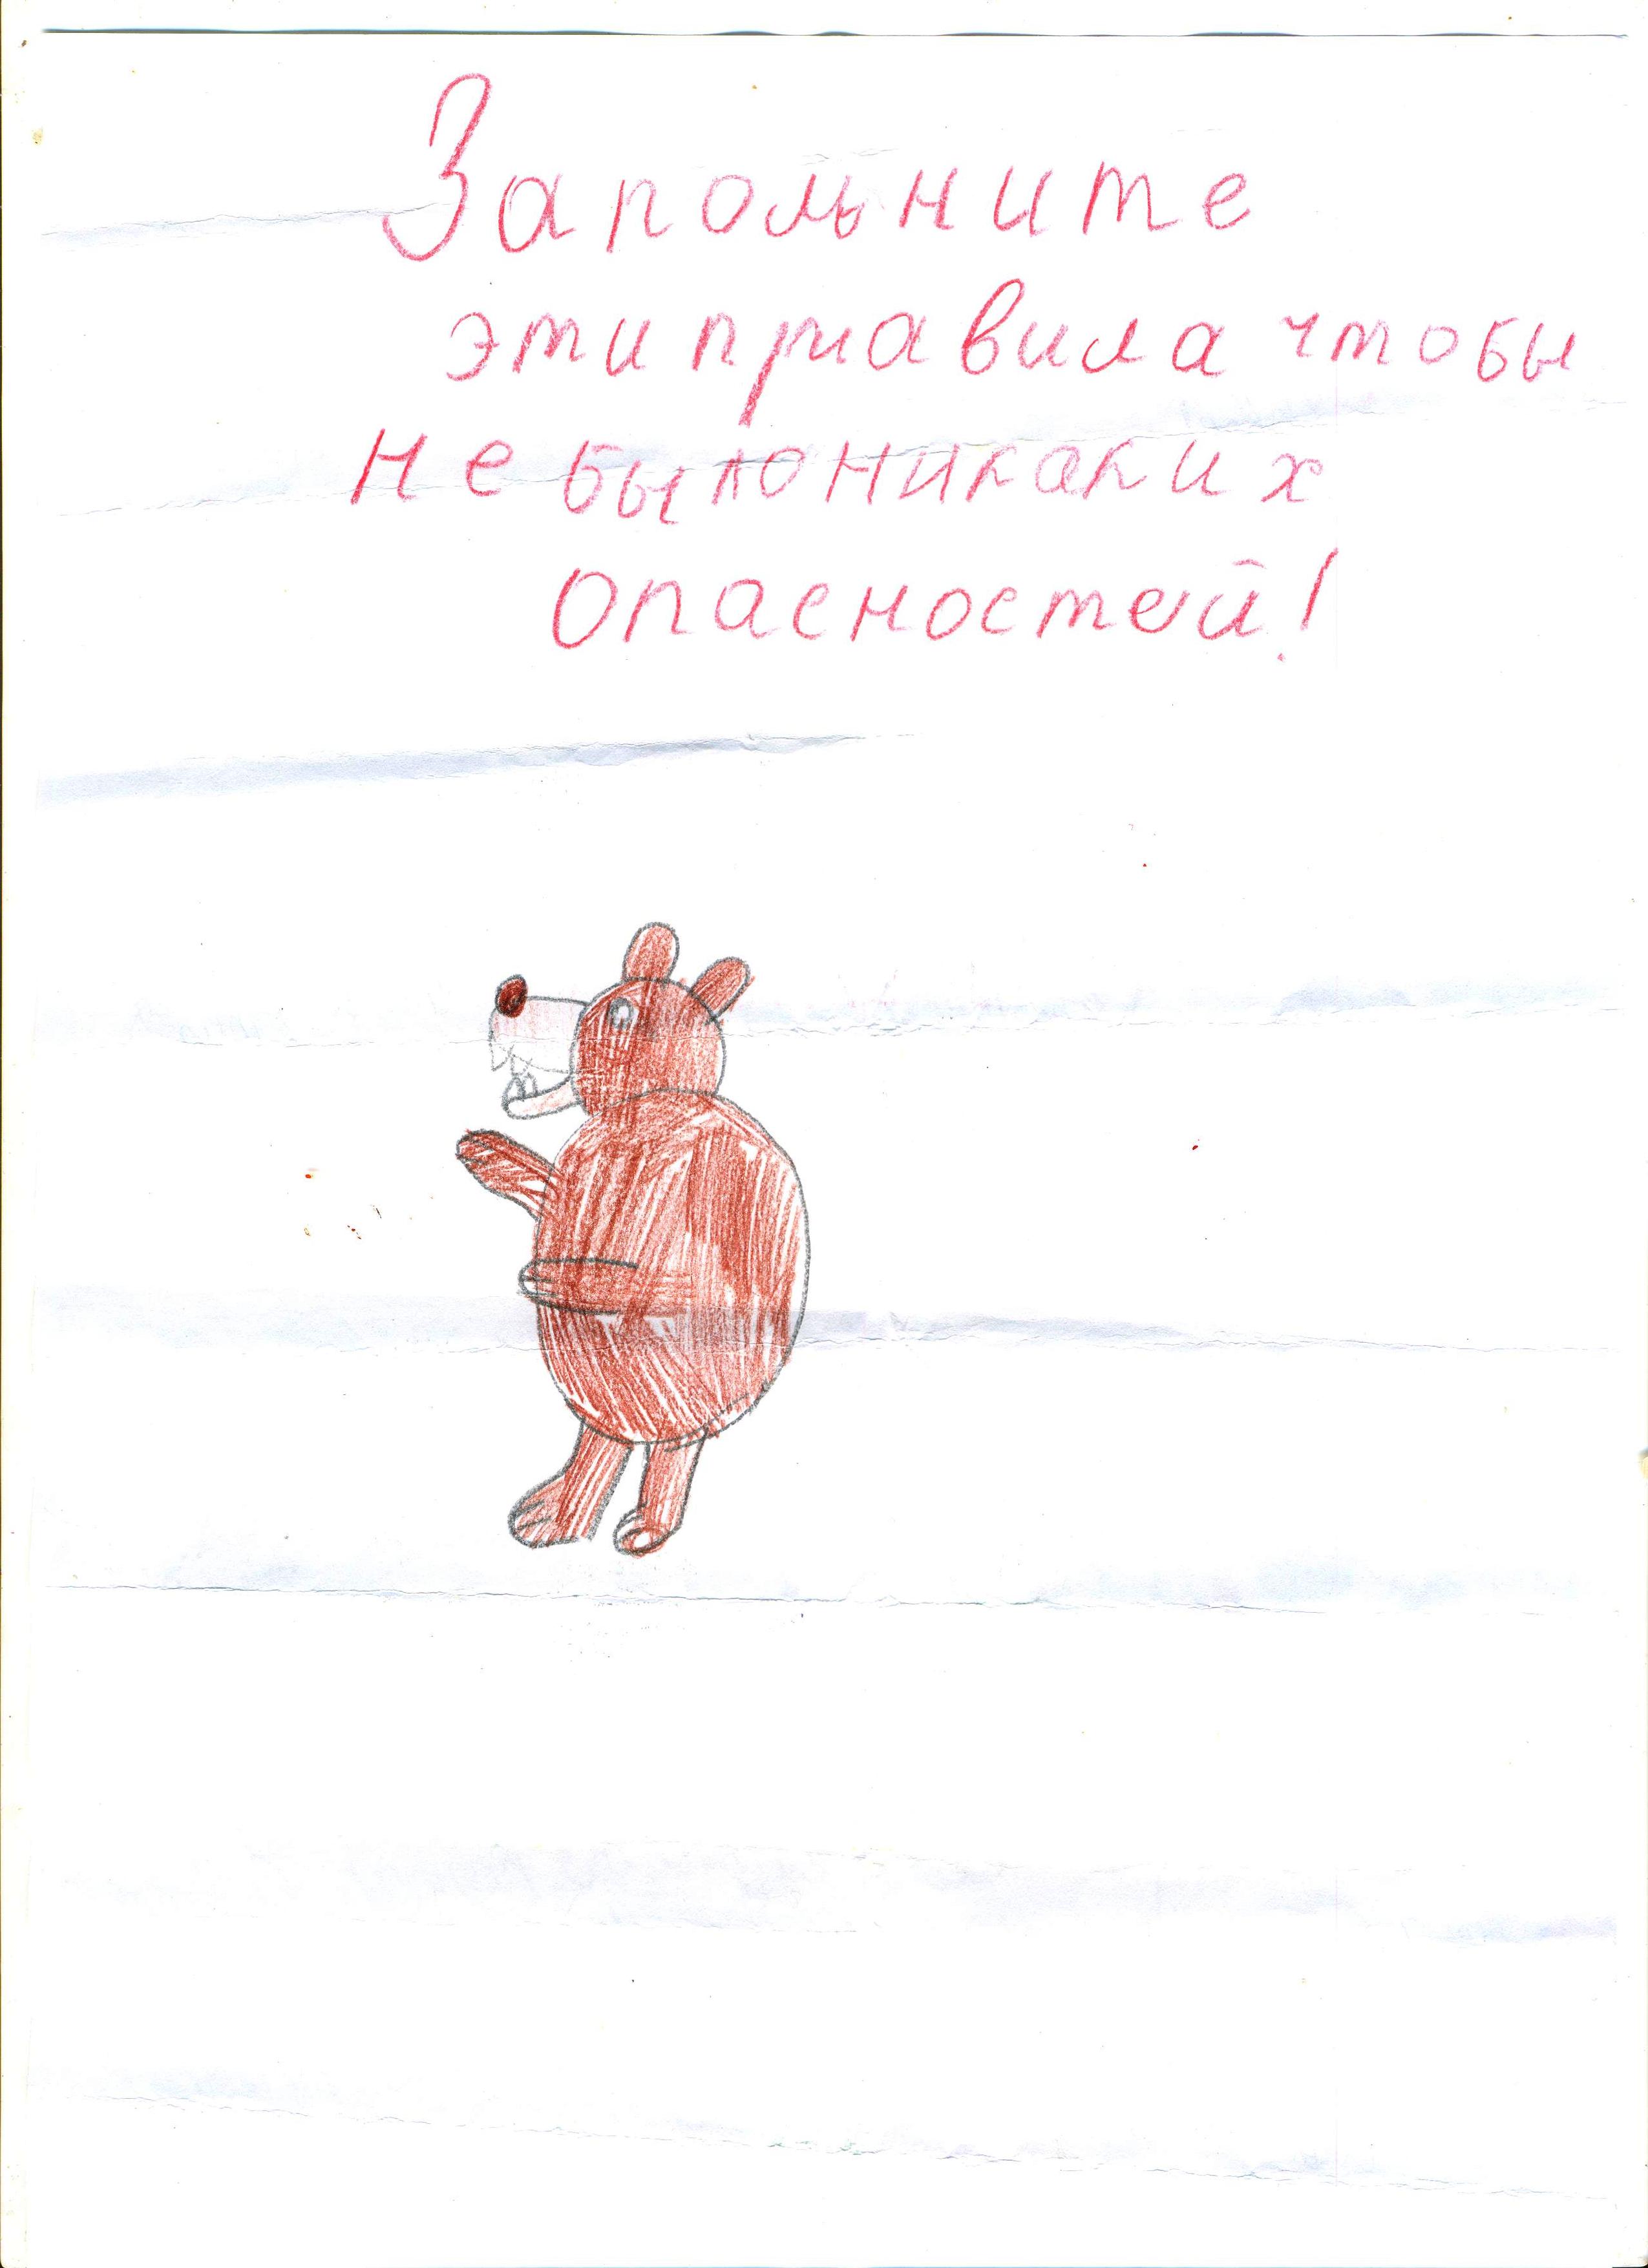 Запольните
эти правила чтобы
не было никаких
опасностей!